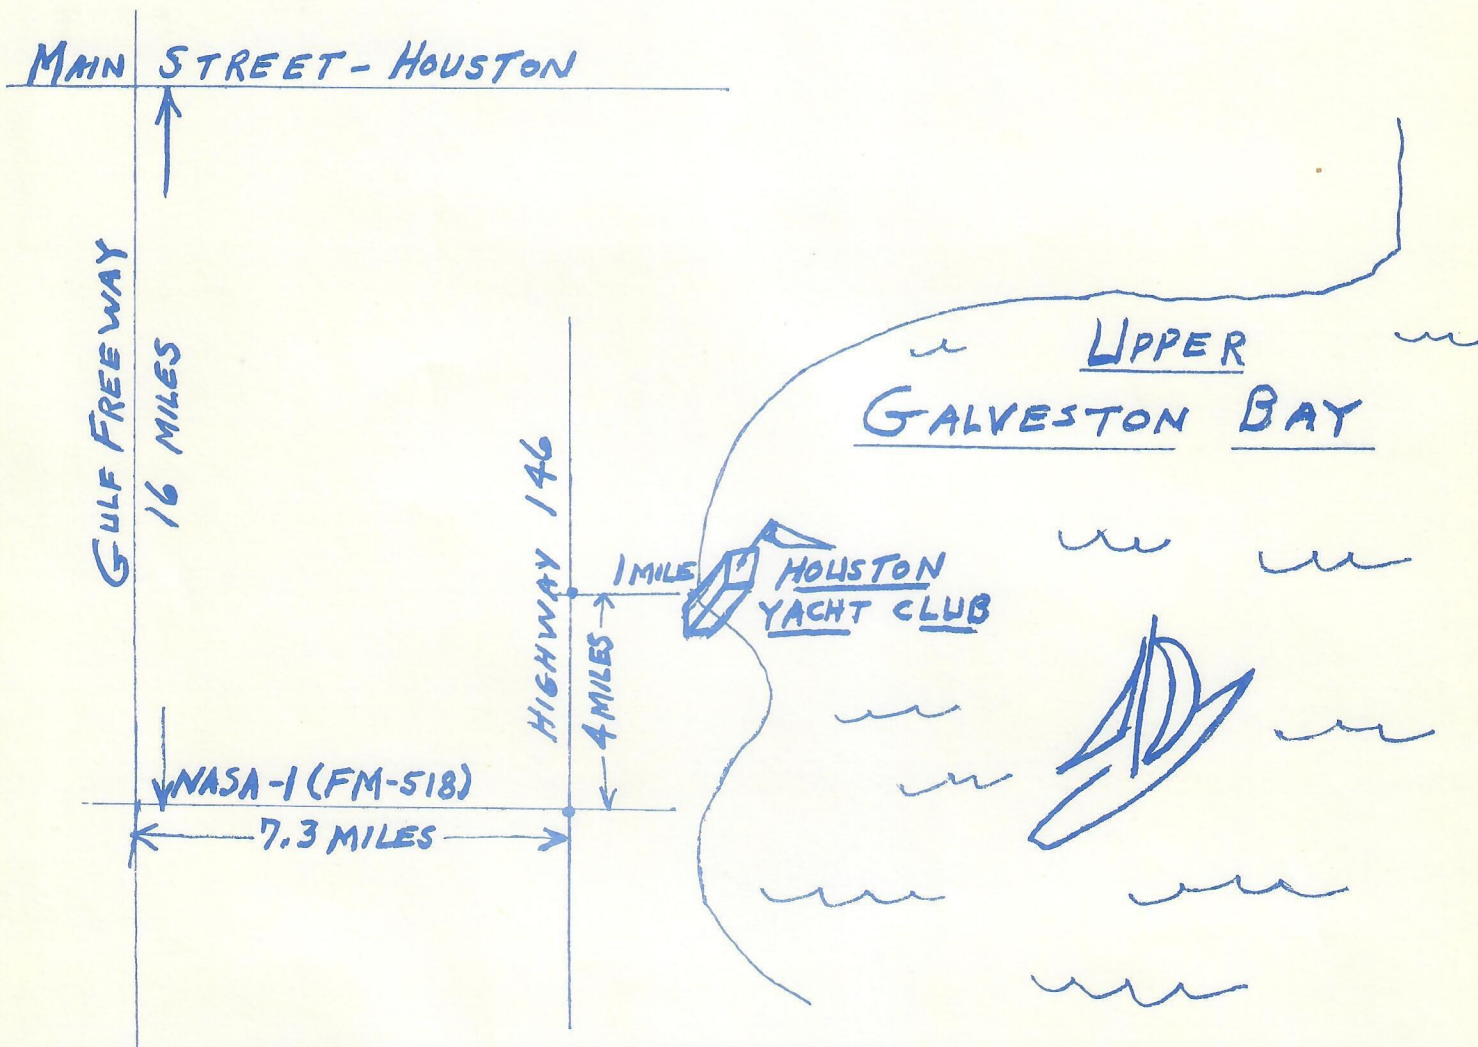 MAIN STREET - HOUSTON
GULF FREEWAY
16 MILES
UPPER
GALVESTON BAY
HIGHWAY 146
1 MILE
HOUSTON
YACHT CLUB
4 MILES
NASA-1 (FM-518)
7.3 MILES